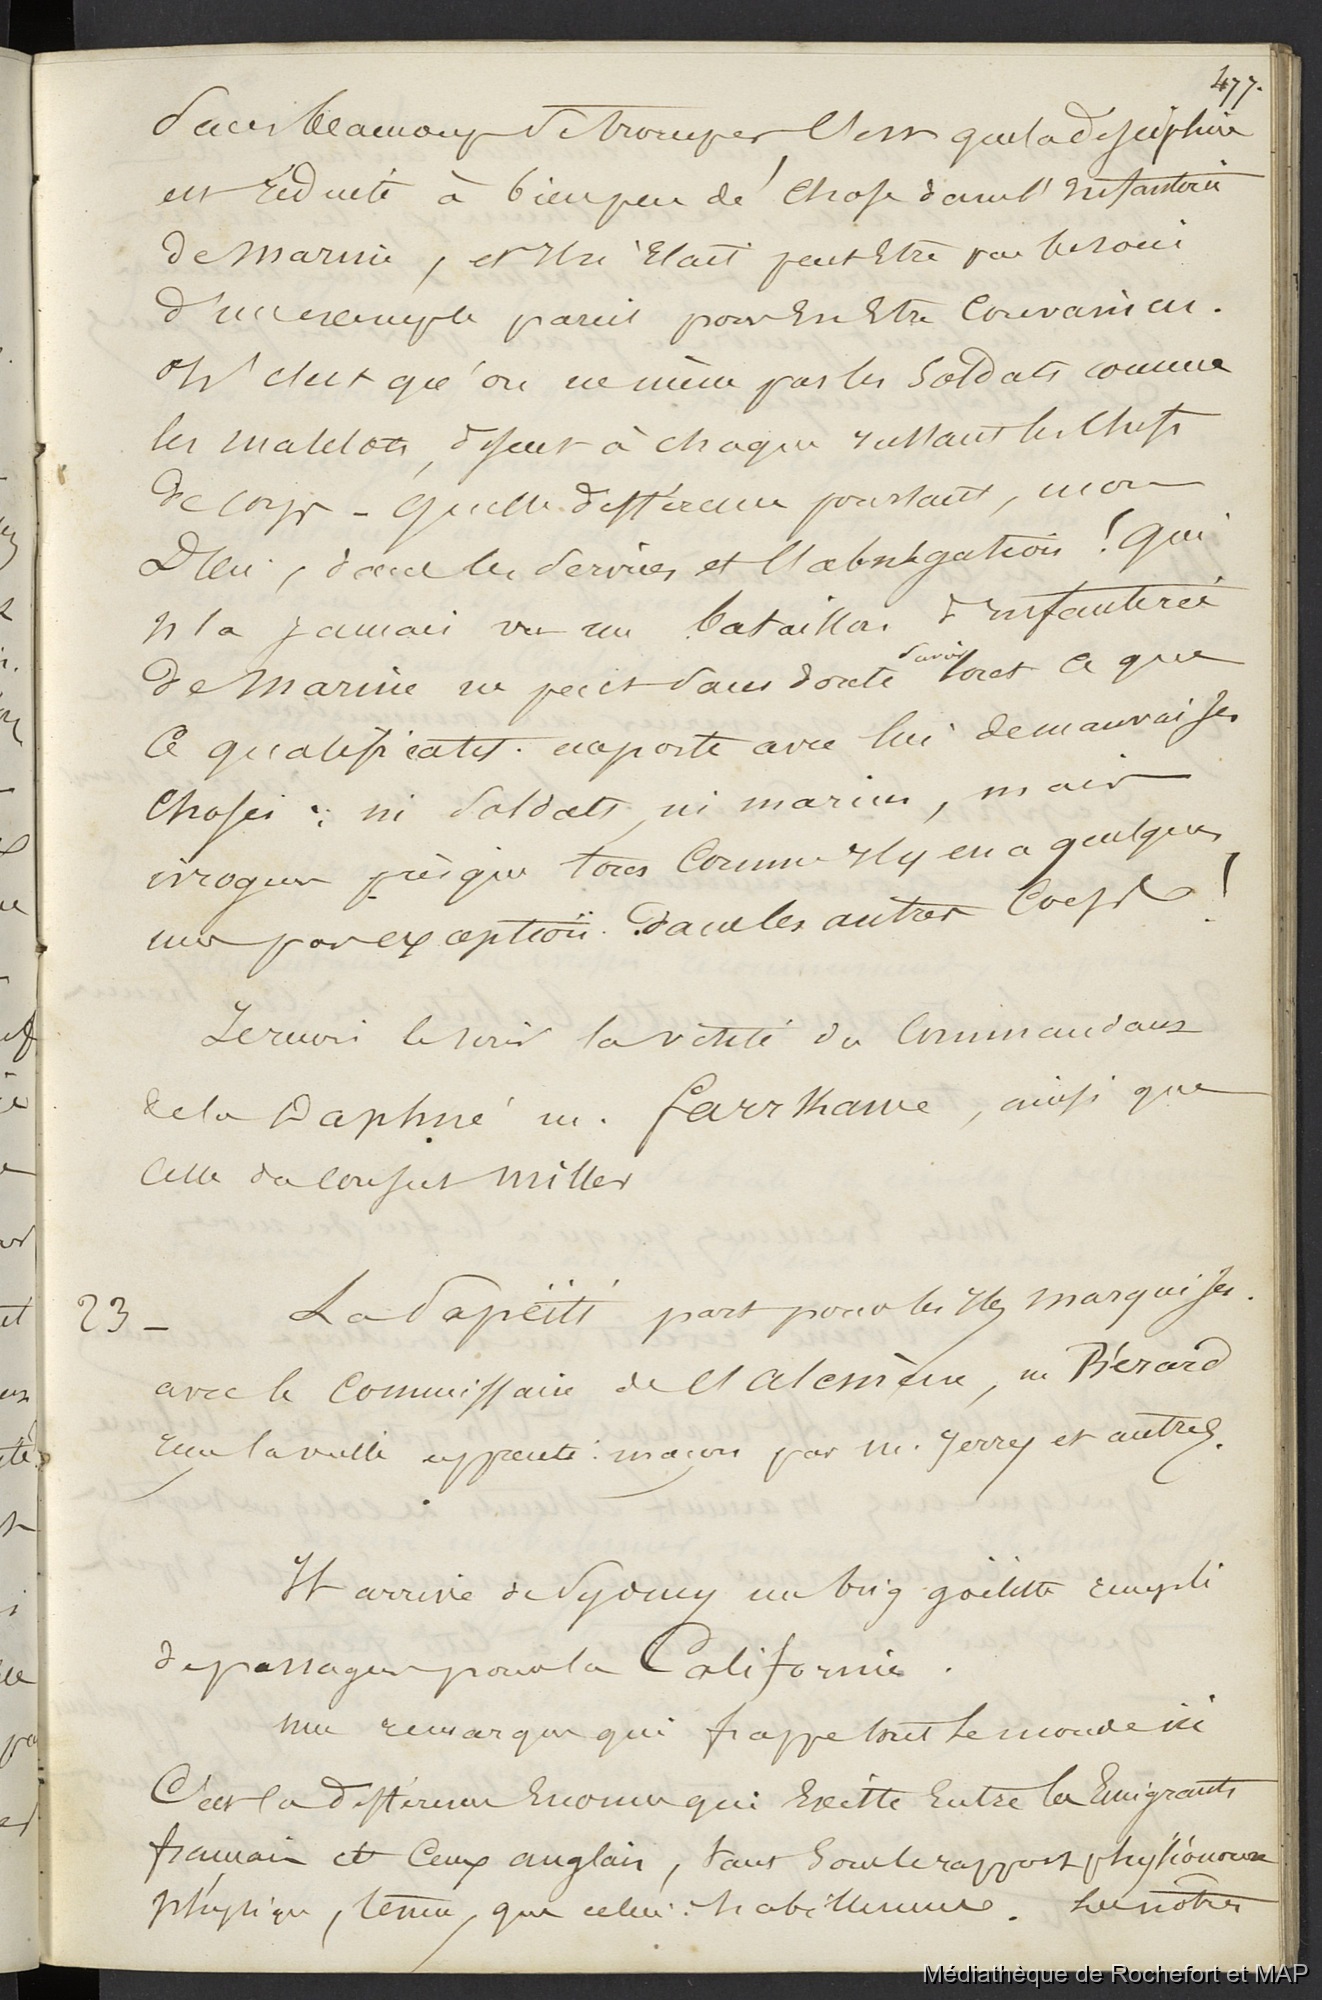 477.
sans beaucoup se tromper, c'est que la discipline
est réduite à bien peu de chose dans l'infanterie
de marine, et il n'était peut être pas besoin
d'un exemple pareil pour en être convaincu.
Ah c'est qu'on ne mène pas les soldats comme
les matelots, disent à chaque instant les chefs
de corps - quelle différence pourtant, mon
Dieu, dans les services et l'abnégation! qui
n'a jamais vu un bataillon d'infanterie
de marine ne peut sans doute savoir tout ce que
ce qualificatif emporte avec lui de mauvaises
choses: ni soldats, ni marins, mais
ivrognes presque tous comme il y en a quelques
uns par exception dans les autres corps!
Je reçois le soir la visite du Commandant
de la Daphné m. , ainsi que
celle du Consul Miller
23 - La Papéiti part pour les Iles Marquises.
avec le Commissaire de l'Alcmène, m Bérard
apprenti maçon par m. et autres.
Il arrive de Sydney un brig goëlette rempli
de passagers pour la Californie.
une remarque qui frappe tout le monde ici
C'est la différence énorme qui existe entre les Emigrants
français et ceux anglais, tant sous le rapport
physique, tenue, que celui: habillement. Les nôtres
Médiathèque de Rochefort et MAP